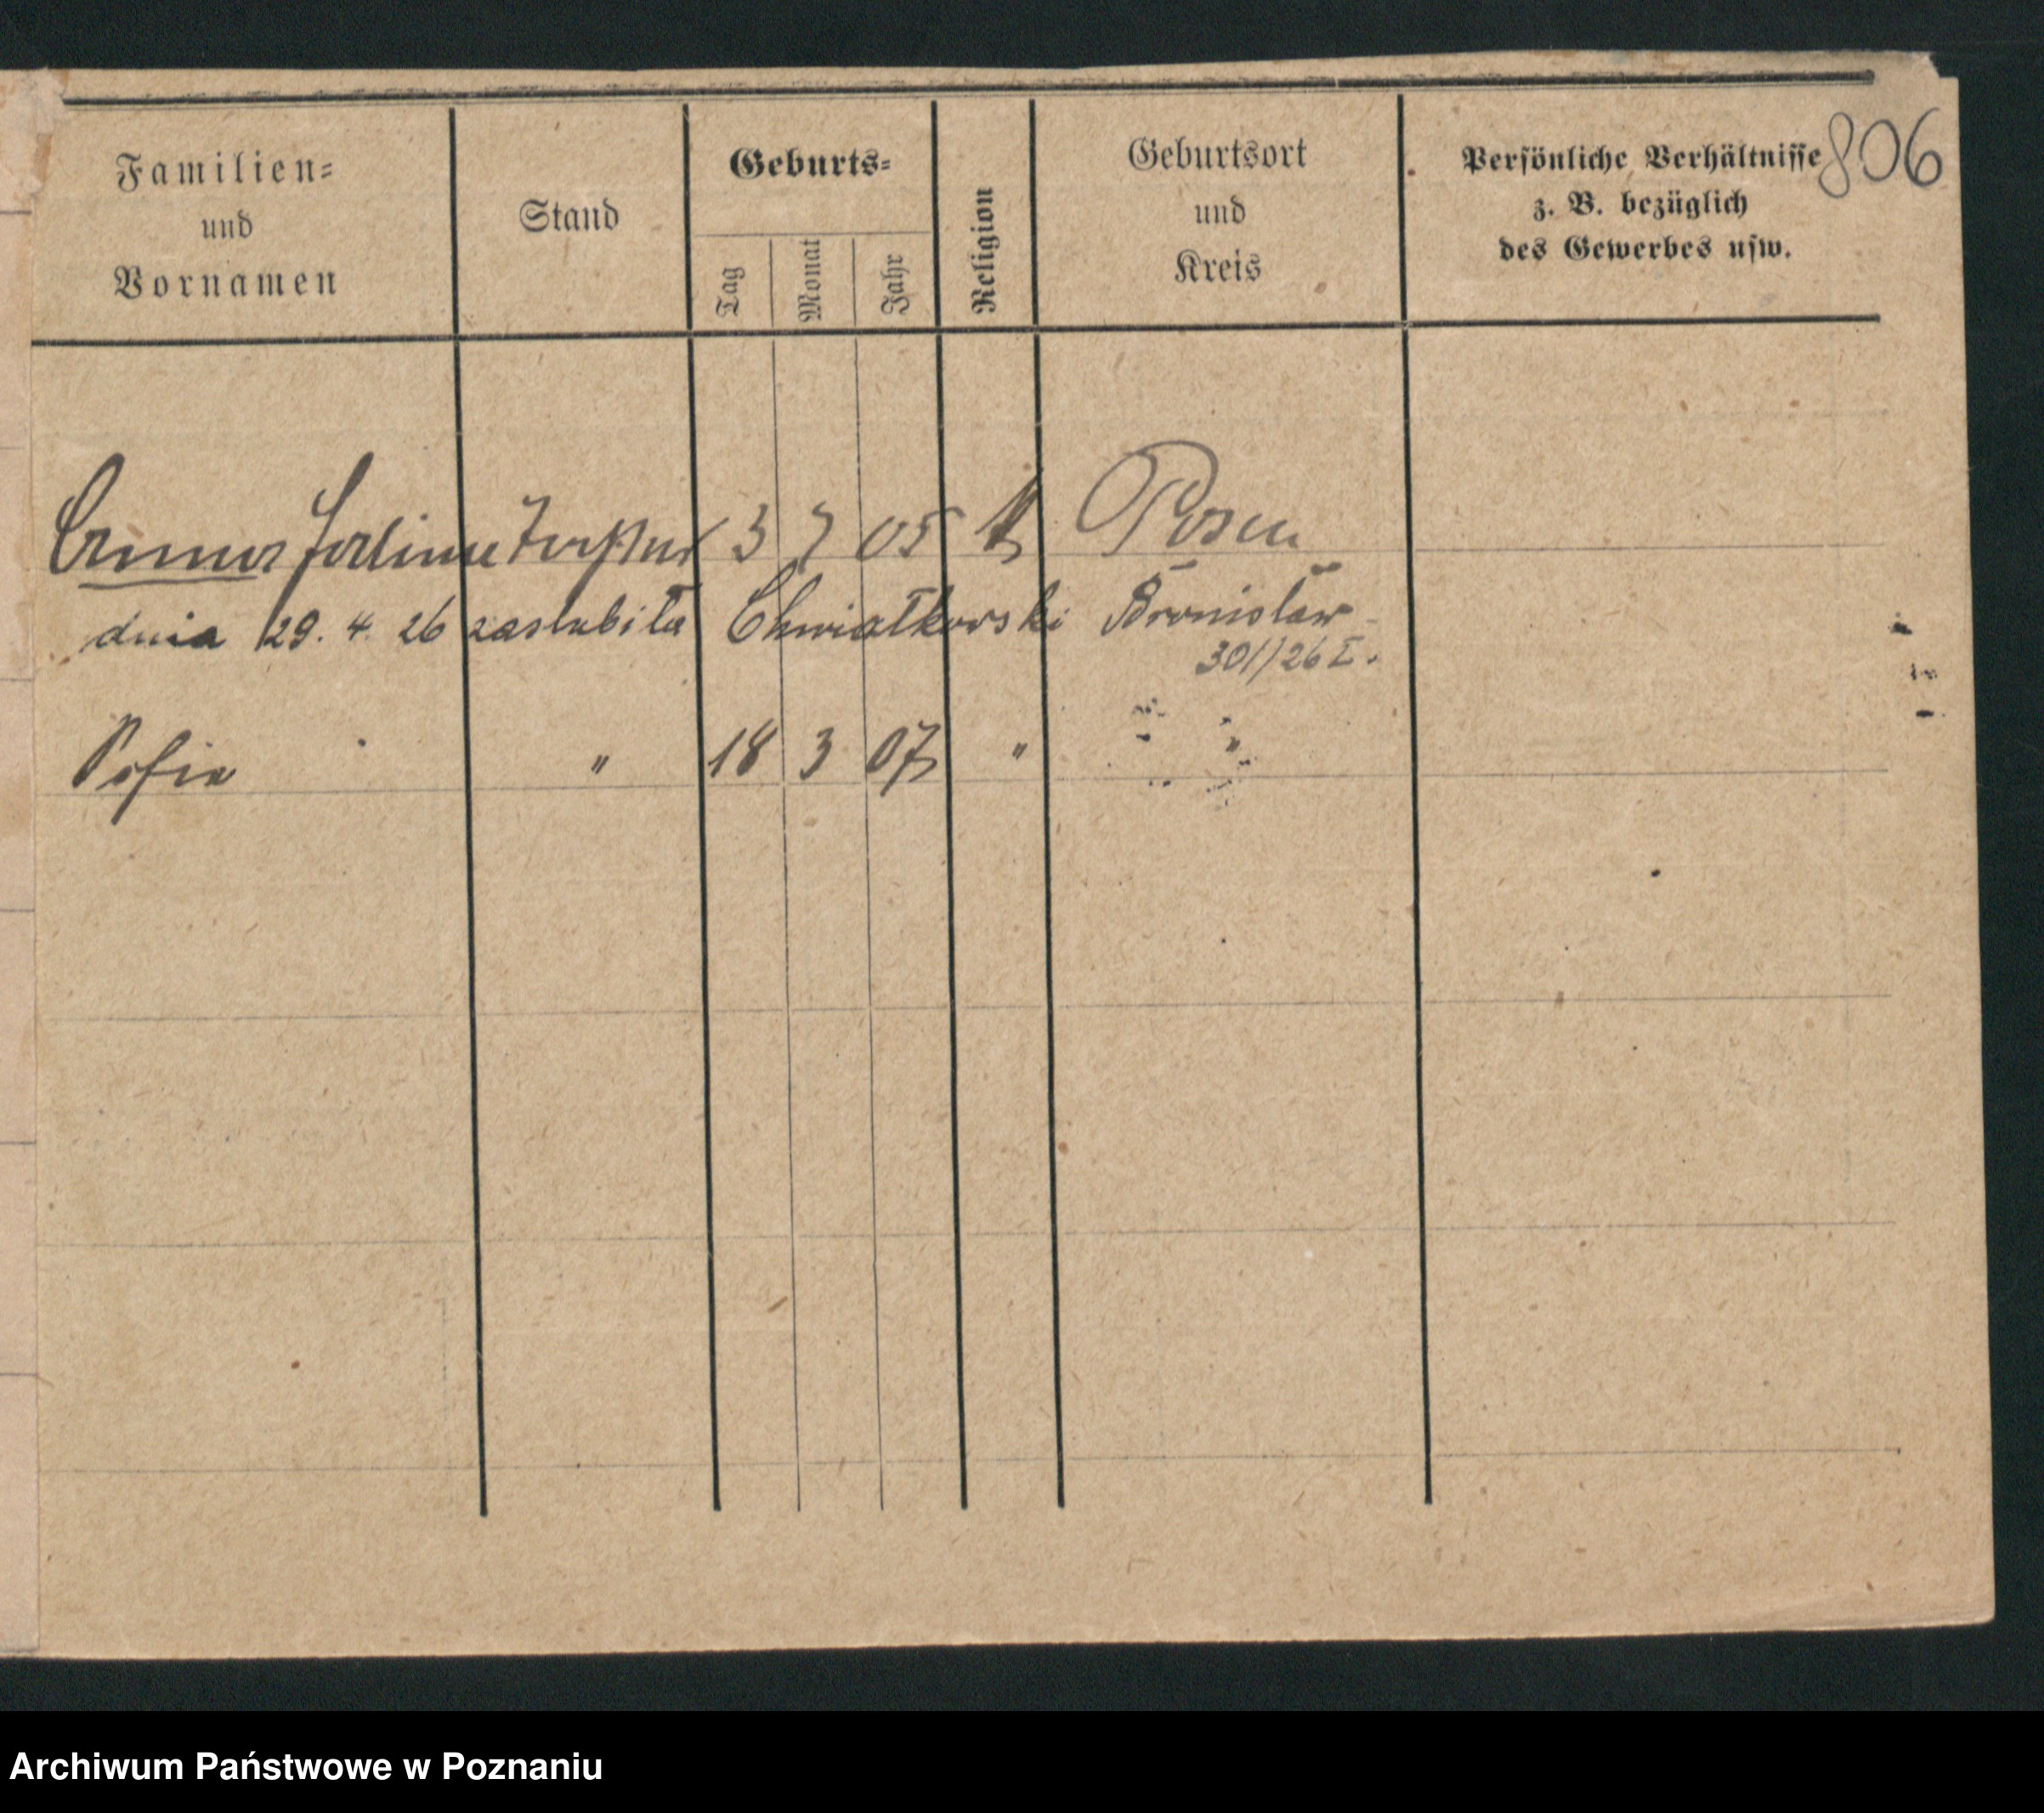 806
Familien-
und
Vornamen
Stand
Geburts-
Tag
Monat
Jahr
Religion
Geburtsort
und
Kreis
Persönliche Verhältnisse
z. B. bezüglich
des Gewerbes usw.
Anna Tochter 3 7 05 k Posen
dnia 29. 4. 26 zaślubiła Chwiałkowski Bronisław
301/26 I.
Sofie " 18 3 07 " "
Archiwum Państwowe w Poznaniu